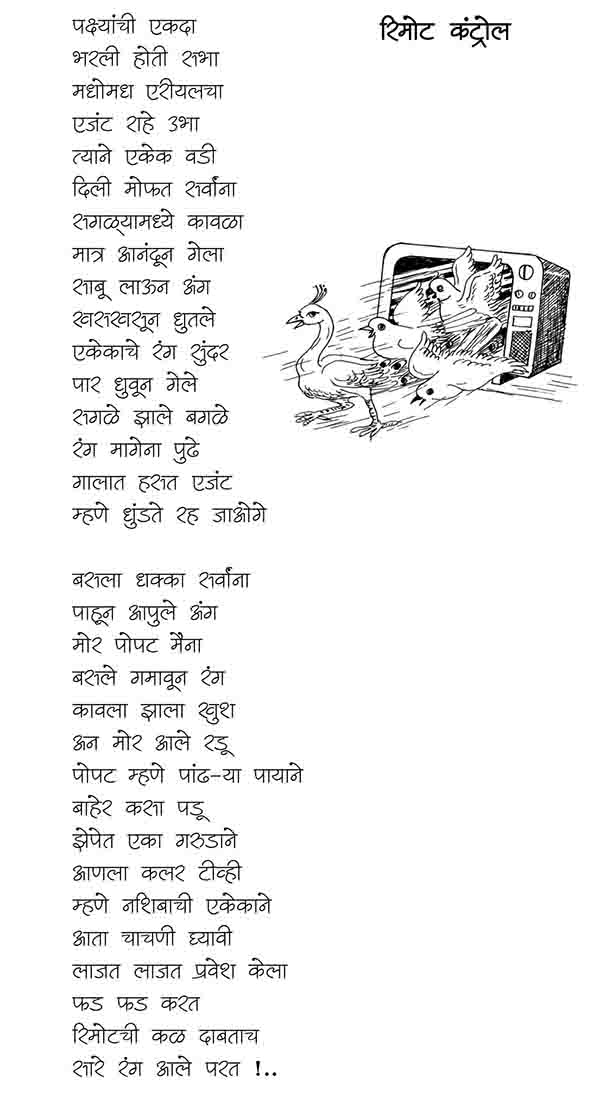 रिमोट कंट्रोल
पक्ष्यांची एकदा
भरली होती सभा
मधोमध एरीयलचा
एजंट राहे उभा
त्याने एकेक वडी
दिली मोफत सर्वांना
सगळ्यामध्ये कावळा
मात्र आनंदून गेला
साबू लाऊन अंग
खसखसून धुतले
एकेकाचे रंग सुंदर
पार धुवून गेले
सगळे झाले बगळे
रंग मागेना पुढे
गालात हसत एजंट
म्हणे धुंडते रह जाओगे
बसला धक्का सर्वांना
पाहून आपुले अंग
मोर पोपट मैना
बसले गमावून रंग
कावला झाला खुश
अन मोर आले रडू
पोपट म्हणे पांढ-या पायाने
बाहेर कसा पडू
झेपेत एका गरुडाने
आणला कलर टीव्ही
म्हणे नशिबाची एकेकाने
आता चाचणी घ्यावी
लाजत लाजत प्रवेश केला
फड फड करत
रिमोटची कळ दाबताच
सारे रंग आले परत !..